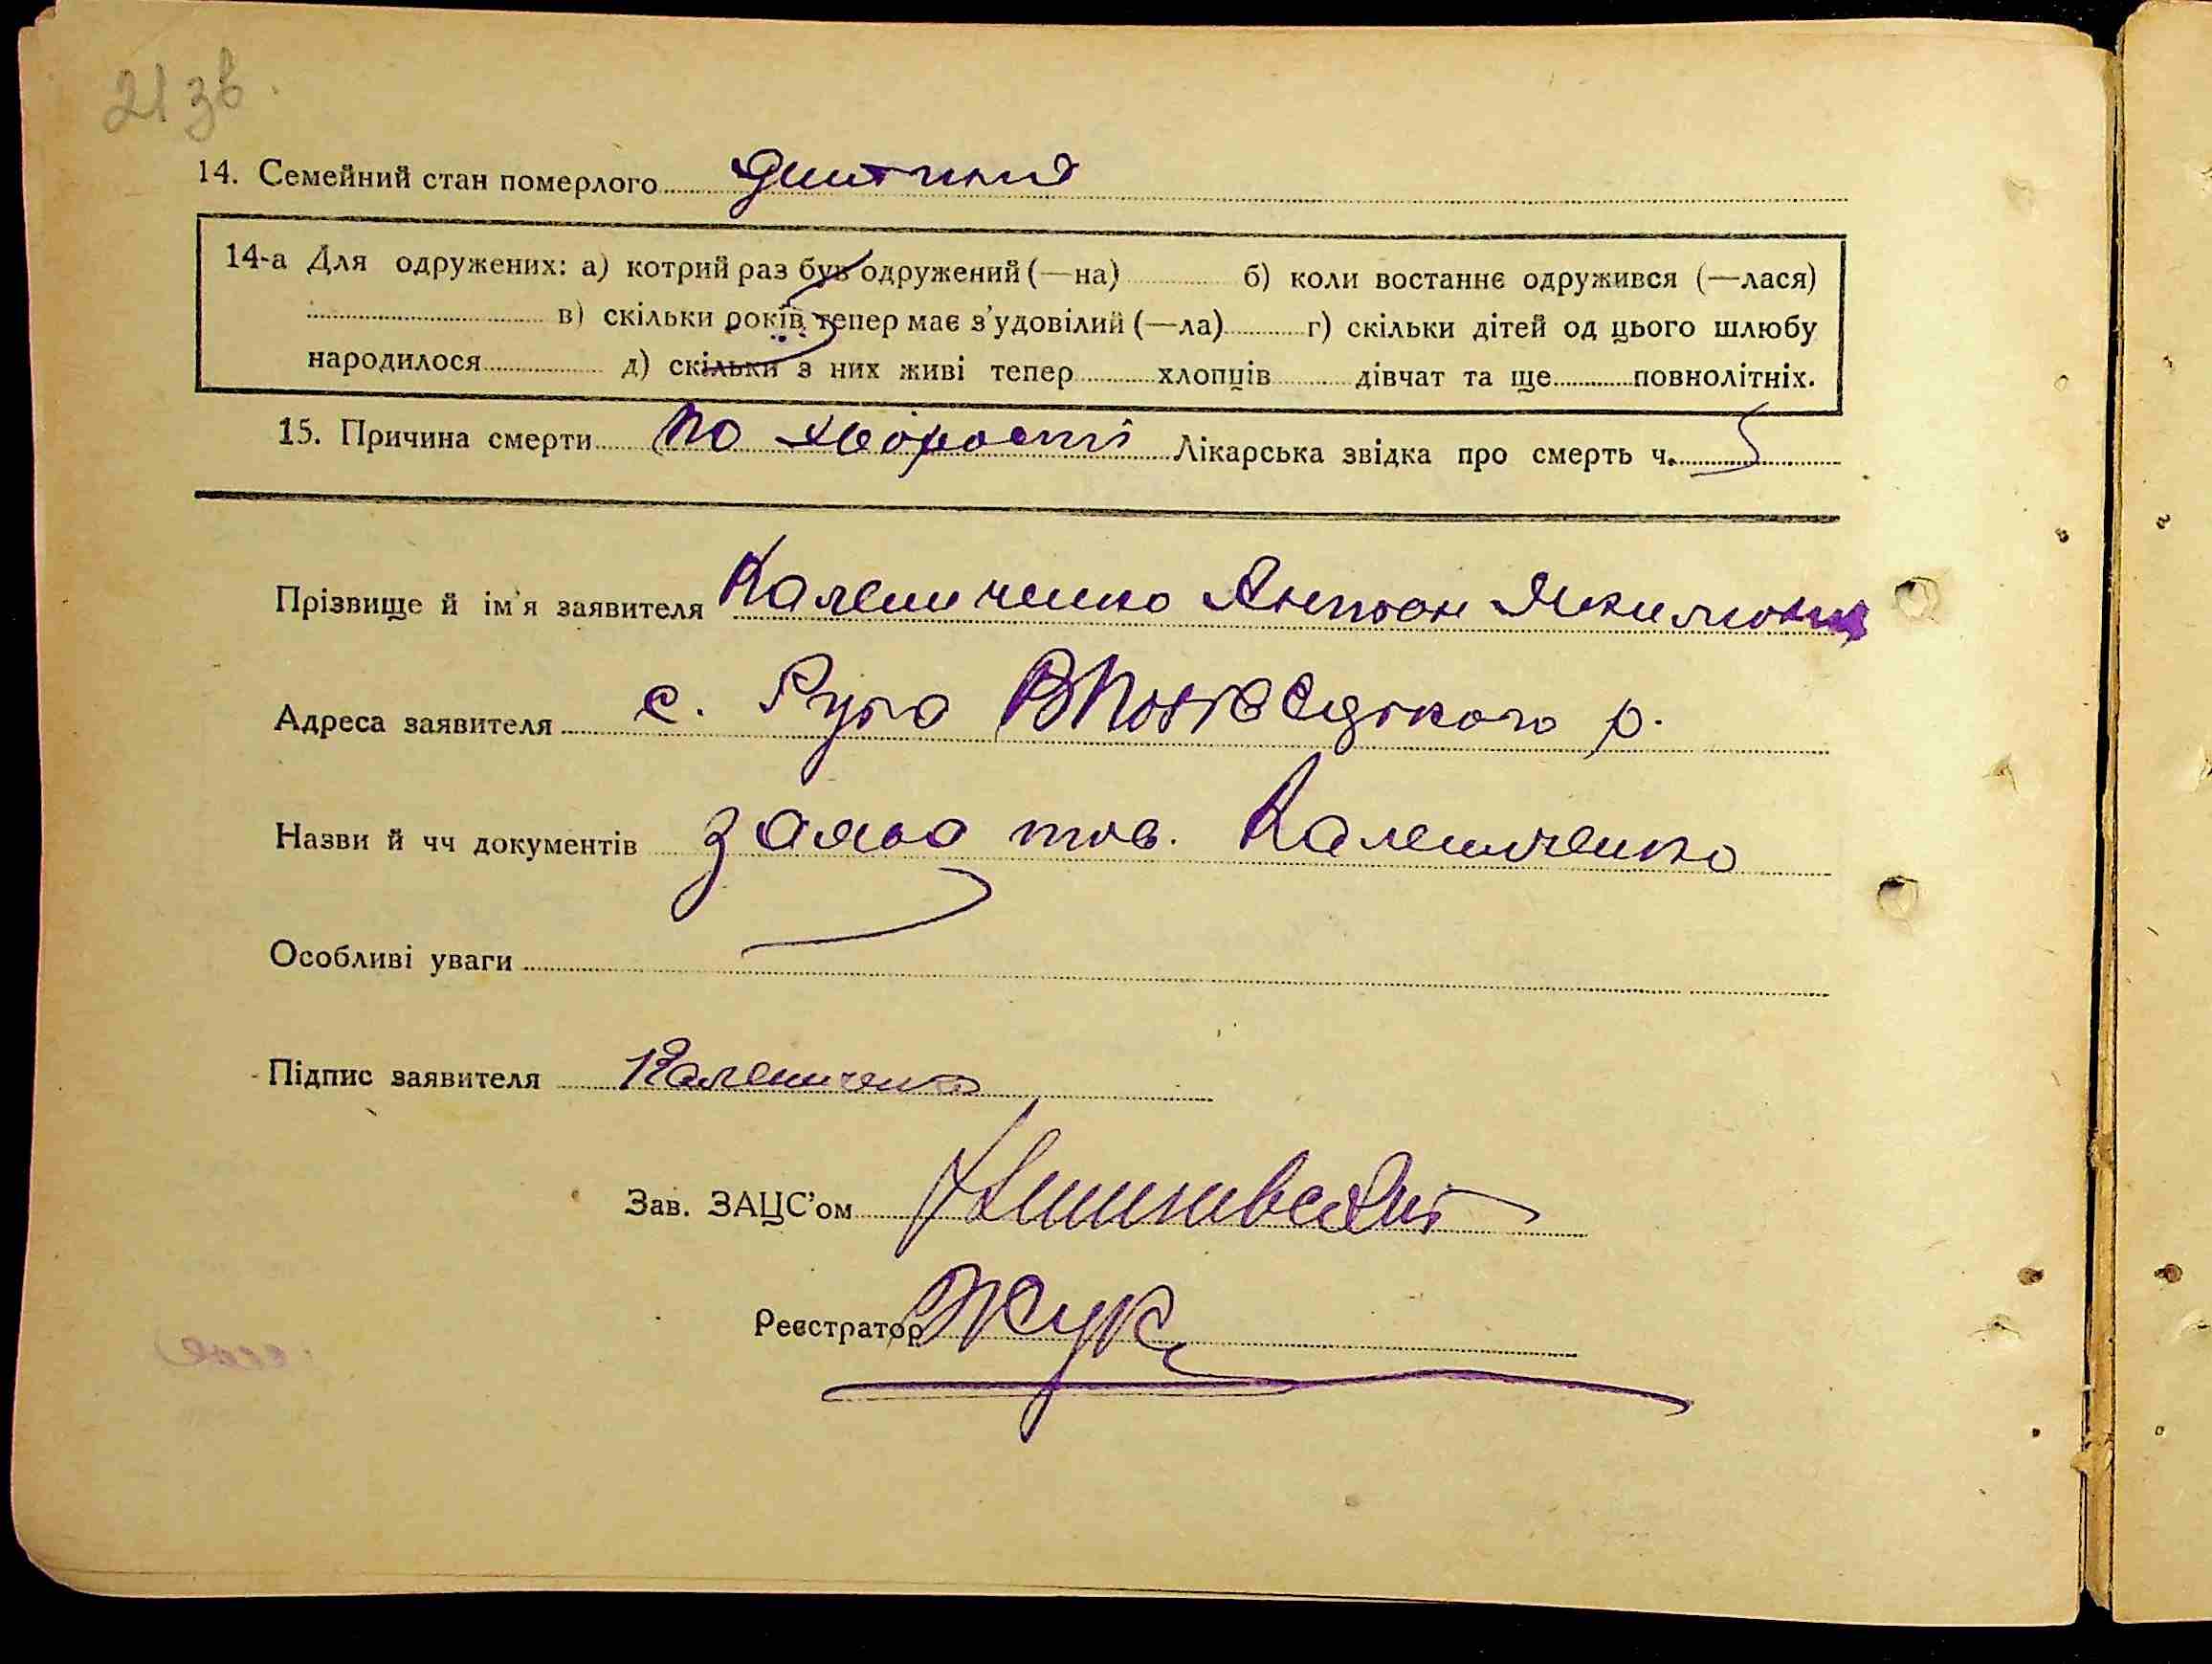 21 зв.
14. Семейний стан померлого дитина
14-а Для одружених: а) котрий раз був одружений (—на) б) коли востаннє одружився (—лася)
в) скільки років тепер має з'удовілий (—ла) г) скільки дітей од цього шлюбу
народилося д) скільки з них живі тепер хлопців дівчат та ще повнолітніх.
15. Причина смерти по хворості Лікарська звідка про смерть ч.
Прізвище й ім'я заявителя Калениченко Антон Якимович
Адреса заявителя с. Руда р.
Назви й чч документів заява тов. Калениченко
Особливі уваги
Підпис заявителя Калениченко
Зав. ЗАЦС'ом
Реєстратор Жук